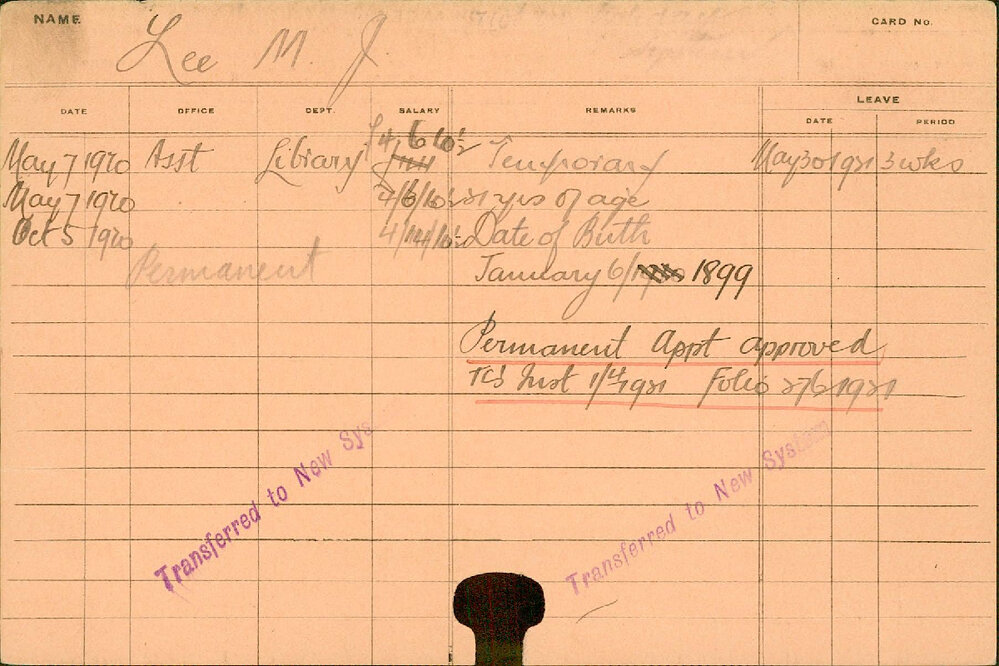 NAME
Lee M. J.
CARD No.
DATE OFFICE DEPT. SALARY REMARKS LEAVE
DATE PERIOD
May 7 1920 Asst Library Temporary May 30 1921 3 wks
May 7 1920 4/6/10 21 yrs of age
Oct 5 1920 4/14/10 Date of Birth
Permanent January 6/ 1899
Permanent Appt approved
Inst 1/4/1921 Folio 1921
Transferred to New Sys
Transferred to New System